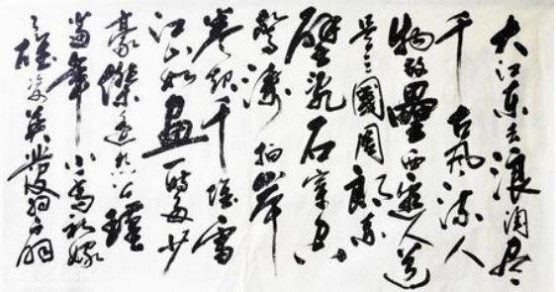 大江东去浪淘尽
千古风流人
物故壘西邊人道
是三國周郎赤
壁乱石穿空
驚濤拍岸
卷起千堆雪
江山如畫一時多少
豪傑遥想公瑾
當年小喬初嫁
了雄姿英發羽扇